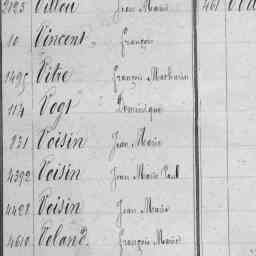 2125 Villou Jean Marie 461
10 Vincent " François
1495 Vitre François Mathurin
114 Vogt " " Dominique
831 Voisin Jean Marie
4392 Voisin Jean Marie Paul
4428 Voisin Jean Marie
4610 Voland François Marie